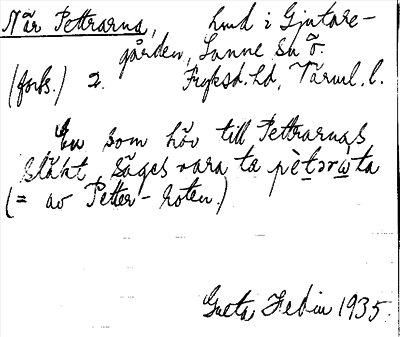 När Pettrarna, hmd i Gjutare-
gården, Sunne sn ö.
(forts.) 2. Fryksd. hd, Värml. l.
En som hör till Pettrarnas
släkt, säges vara ta pètərωta
(= av Petter-roten.)
Greta Hedin 1935.